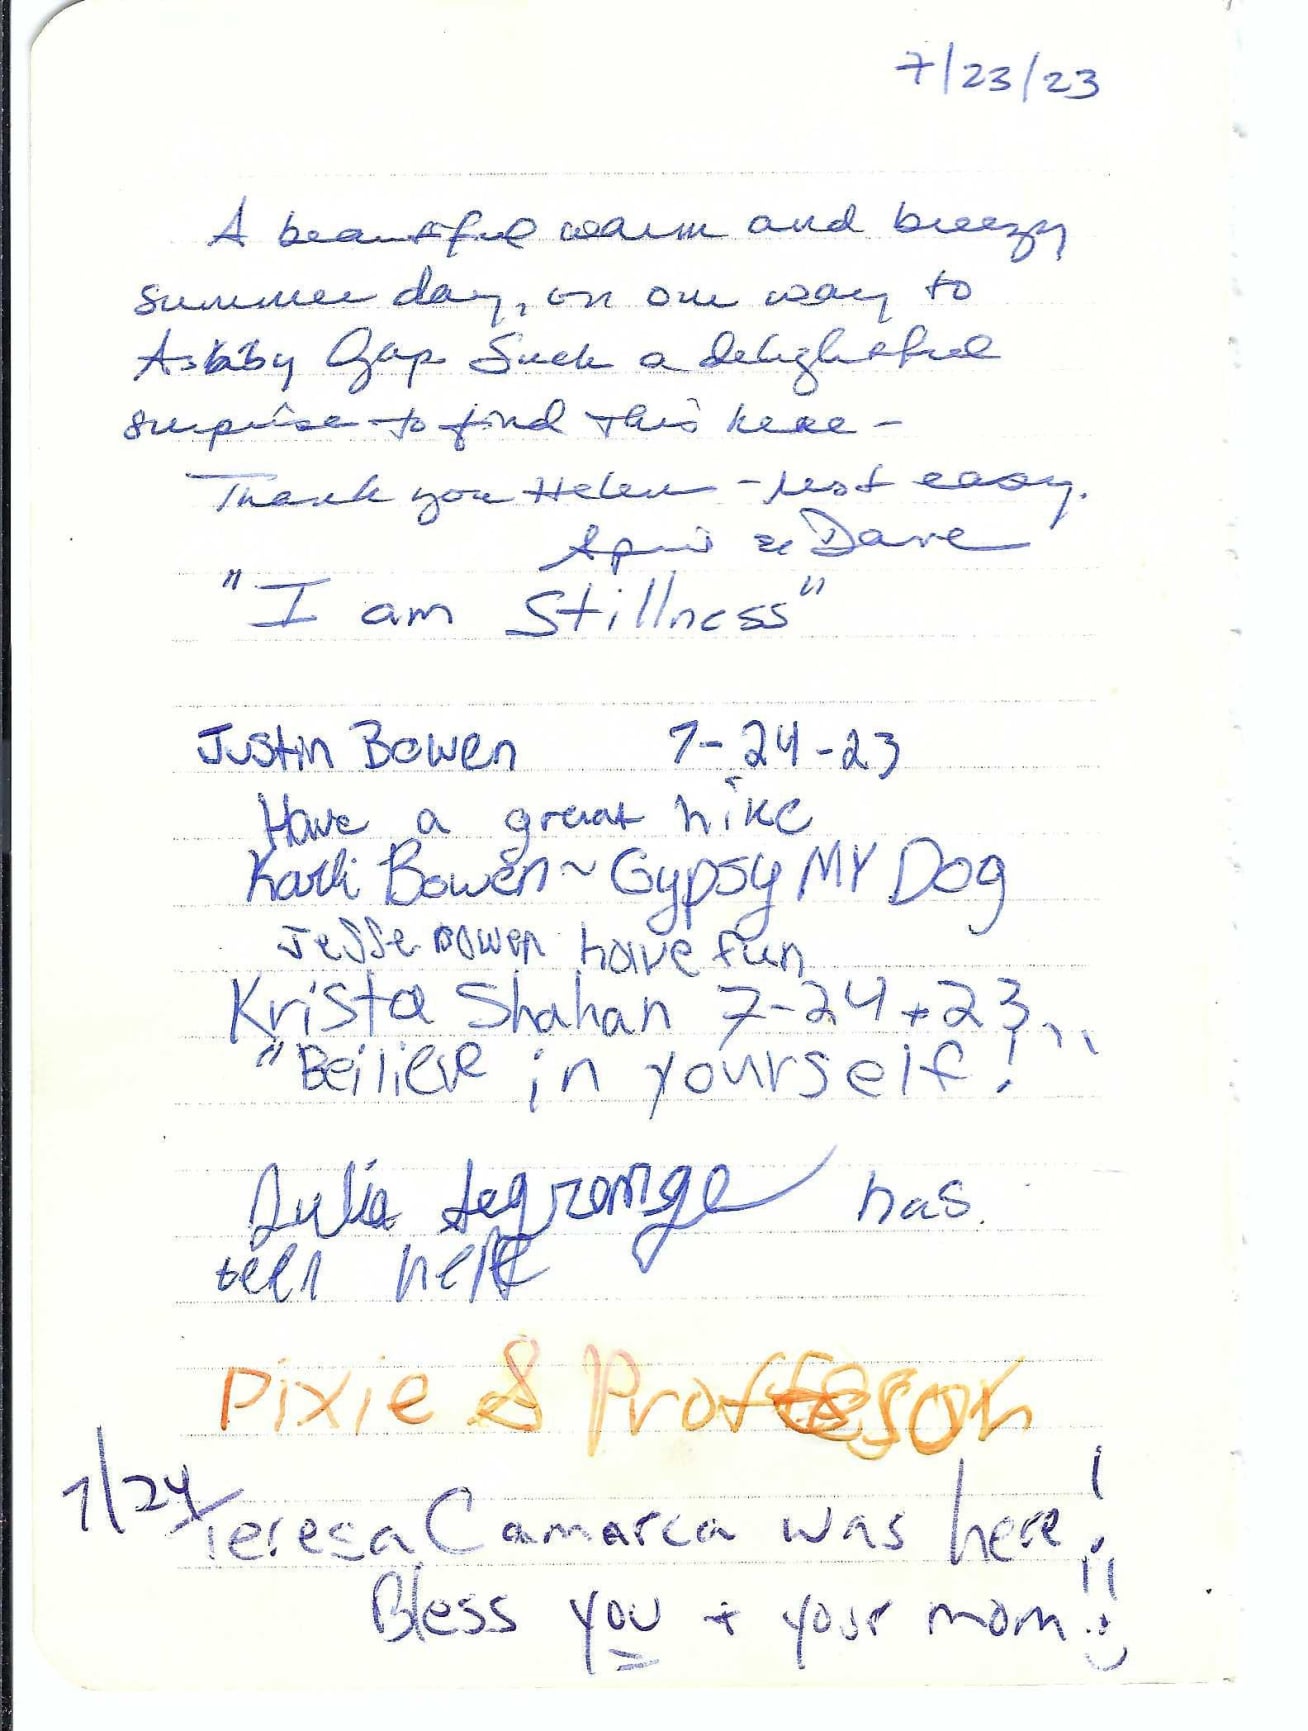 7/23/23
A beautiful warm and breezy
summer day, on our way to
Ashby Gap Such a delightful
surprise to find this here –
Thank you Helen – rest easy.
April & Dave
"I am Stillness"
Justin Bowen 7-24-23
Have a great hike
Karli Bowen ~ Gypsy MY Dog
Jesse Bowen have fun
Krista Shahan 7-24-23
"Beilieve in yourself!"
Julia Legrange has
been here
Pixie & Proffesor
7/24 Teresa Camarca was here!
Bless you + your mom!! :)